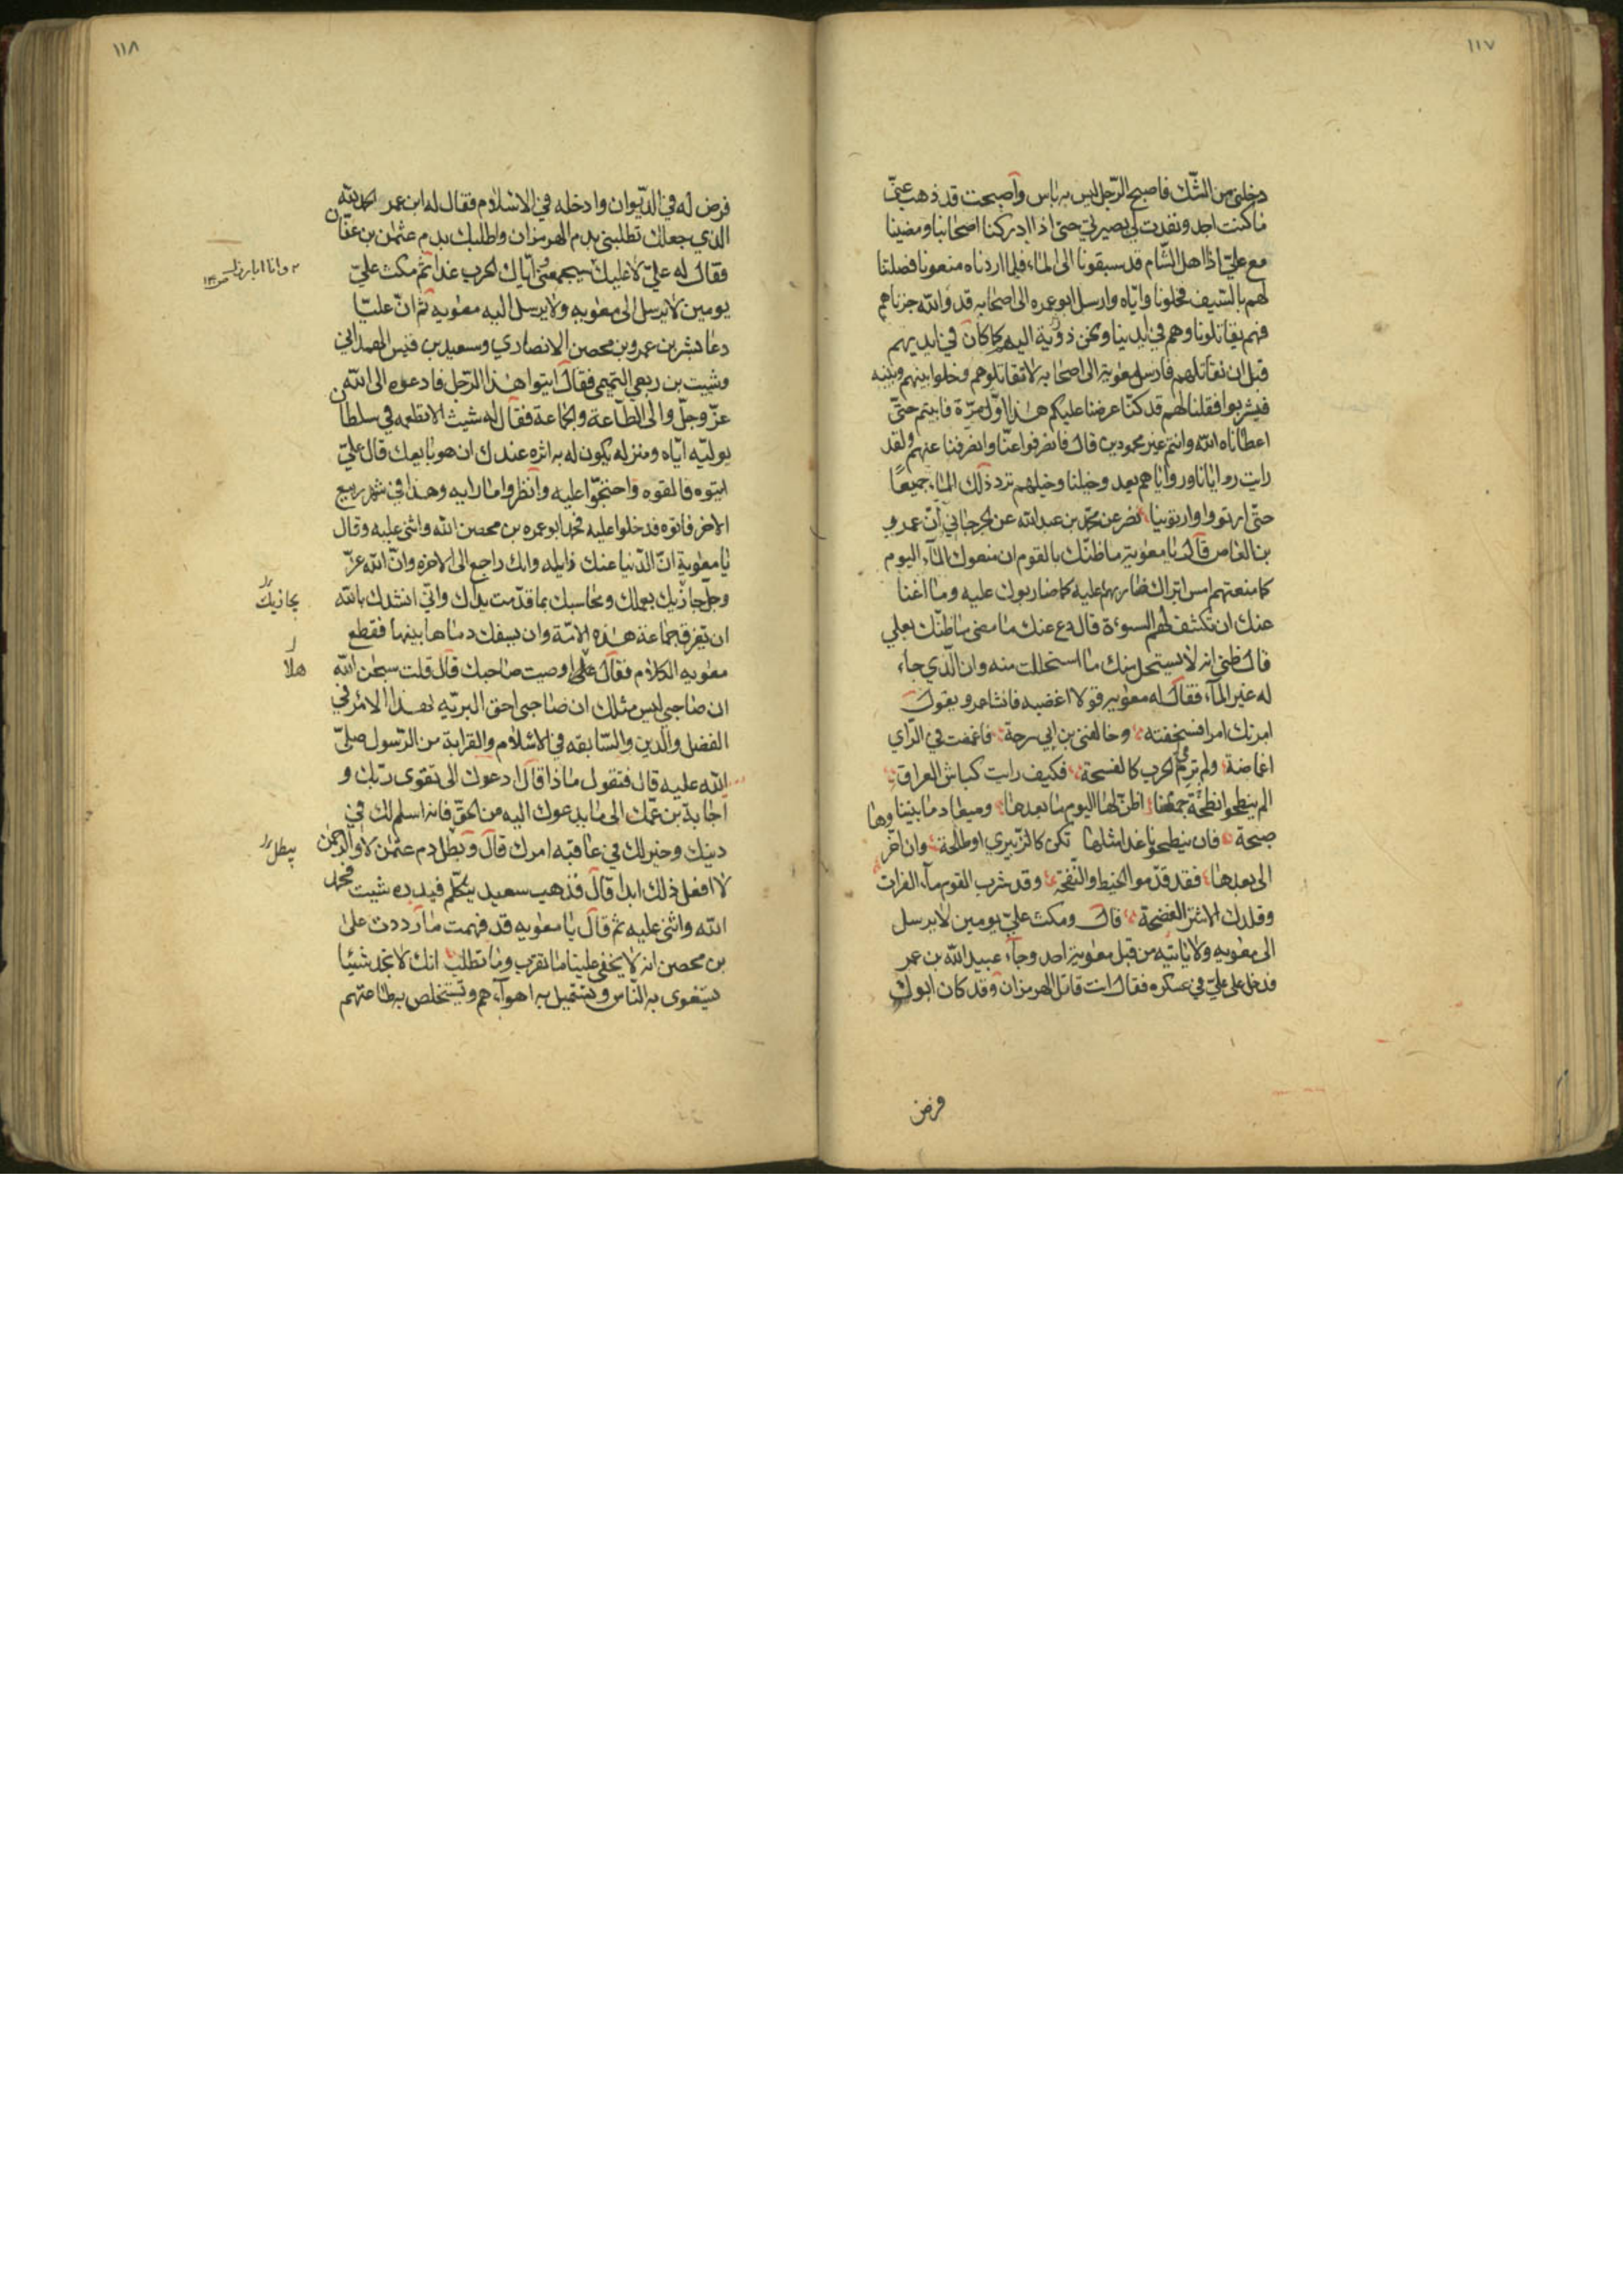 ١١٧
دخلني من الشّك فاصبح الرّجل ليس به باس وأصبحت قد ذهب عنّي
ما كنت اجد ونفذت لي بصيرتي حتى اذا ادركنا اصحابنا ومضينا
مع عليّ اذا اهل الشّام قد سبقونا الى الماء فلما اردناه منعونا فصلتنا
لهم بالسّيف فخلونا وايّاه وارسل ابو عمره الى اصحابه قد والله جزناهم
فهم يقاتلونا وهم في ايدينا ونحن دونه اليهم كما كان في ايديهم
قبل ان نقاتلهم فارسل معوية الى اصحابه لا تقاتلوهم وخلوا بينهم وبينه
فيشربوا فقلنا لهم قد كنّا عرضنا عليكم هذا اوّل مرّة فابيتم حتّى
اعطاناه الله وانتم غير محمودين قال فانصرفوا عنّا وانصرفنا عنهم ولقد
رايت روايانا ورواياهم بعد وخيلنا وخيلهم ترد ذلك الماء جميعًا
حتّى ارتووا وارتوينا نصر عن محمّد بن عبد الله عن الجرجاني أنّ عمرو
بن العاص قال يا معوية ما ظنّك بالقوم ان منعوك الماء اليوم
كما منعتهم امس اتراك تضاربهم عليه كما ضاربوك عليه وما اغنا
عنك ان تكشف لهم السوءة قال دع عنك ما مضى ما ظنّك بعلي
قال ظني انه لا يستحل منك ما استحللت منه وان الّذي جاء
له غير الماء فقال له معوية قولا اغضبه فانشا عمرو يقول
امرتك امرا فسخفته وخالفني بن ابي سرحة فاغمضت في الرّاي
اغماضة ولم تر في الحرب كالفسحة فكيف رايت كباش العراق
الم ينطحوا نطحة جمعنا اظنّ لها اليوم ما بعدها وميعاد ما بيننا وها
صبحة فان ينطحونا غدا مثلها تكن كالزّبيري او طلحة وان اخّر
الى بعدها فقد قدّموا الخبط والنّفحة وقد شرب القوم ماء الفرات
وقلدك الاشتر الفضحة قال ومكث عليّ يومين لا يرسل
الى معويه ولا ياتيه من قبل معوية احد وجاء عبيد الله بن عمر
فدخل على عليّ في عسكره فقال انت قاتل الهرمزان وقد كان ابوك
فرض
١١٨
فرض له في الدّيوان وادخله في الاسلام فقال له ابن عمر الحمد لله
الذي جعلك تطلبني بدم الهرمزان واطلبك بدم عثمن بن عفّان
فقال له عليّ لا عليك سيجمعني وايّاك الحرب غدا ثم مكث عليّ
يومين لا يرسل الى معويه ولا يرسل اليه معويه ثم انّ عليّا
دعا بشر بن عمرو بن محصن الانصاري وسعيد بن قيس الهمداني
وشبث بن ربعي التميمي فقال ايتوا هذا الرّجل فادعوه الى الله
عزّ وجلّ والى الطّاعة والجماعة فقال له شبث الا نطعمه في سلطان
توليّه ايّاه ومنزله يكون له بها اثره عندك ان هو بايعك قال عليّ
ايتوه فالقوه واحتجّوا عليه وانظروا ما رايه وهذا في شهر ربيع
الاخر فاتوه فدخلوا عليه فحمد ابو عمره بن محصن الله واثنى عليه وقال
يا معوية انّ الدّنيا عنك زايله وانك راجع الى الاخره وانّ الله عزّ
وجلّ جازيك بعملك ومحاسبك بما قدّمت يداك وانّي انشدك بالله
يجازيك
ان تفرق جماعة هذه الامّة وان تسفك دماها بينها فقطع
معويه الكلام فقال هلا اوصيت صاحبك قال قلت سبحن الله
هلا
ان صاحبي ليس مثلك ان صاحبي احق البريّه بهذا الامر في
الفضل والدّين والسّابقه في الاسلام والقرابة من الرّسول صلّى
الله عليه قال فتقول ماذا قال ادعوك الى تقوى ربّك و
اجابة بن عمّك الى ما يدعوك اليه من الحقّ فانه اسلم لك في
دينك وخير لك في عاقبه امرك قال وبطل دم عثمن لا والرحمن
يبطل
لا افعل ذلك ابدا قال فذهب سعيد يتكلّم فبدره شبث فحمد
الله واثنى عليه ثم قال يا معويه قد فهمت ما رددت على
بن محصن انه لا يخفى علينا ما تقرب وما تطلب انك لا تجد شيئا
تستغوى به النّاس وتستميل به اهواءهم وتستخلص به طاعتهم